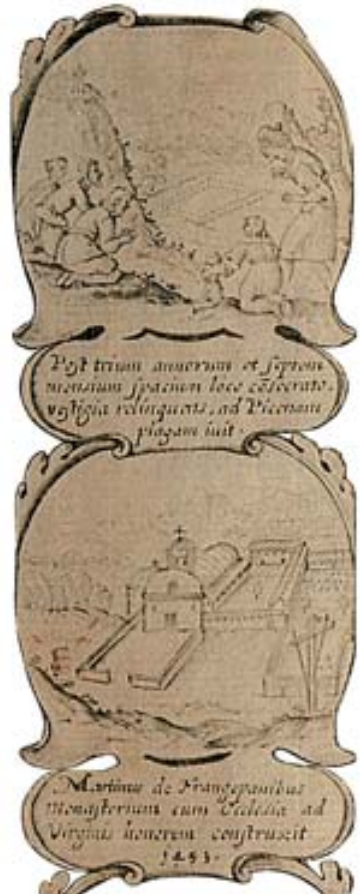 Post trium annorum et septem
mensium spacium loco cõsecrato,
vestigia relinquens, ad Picenam
plagam iuit.
Martinus de Frangepanibus
monasterium cum Ecclesia ad
Virginis honorem construxit
1453.